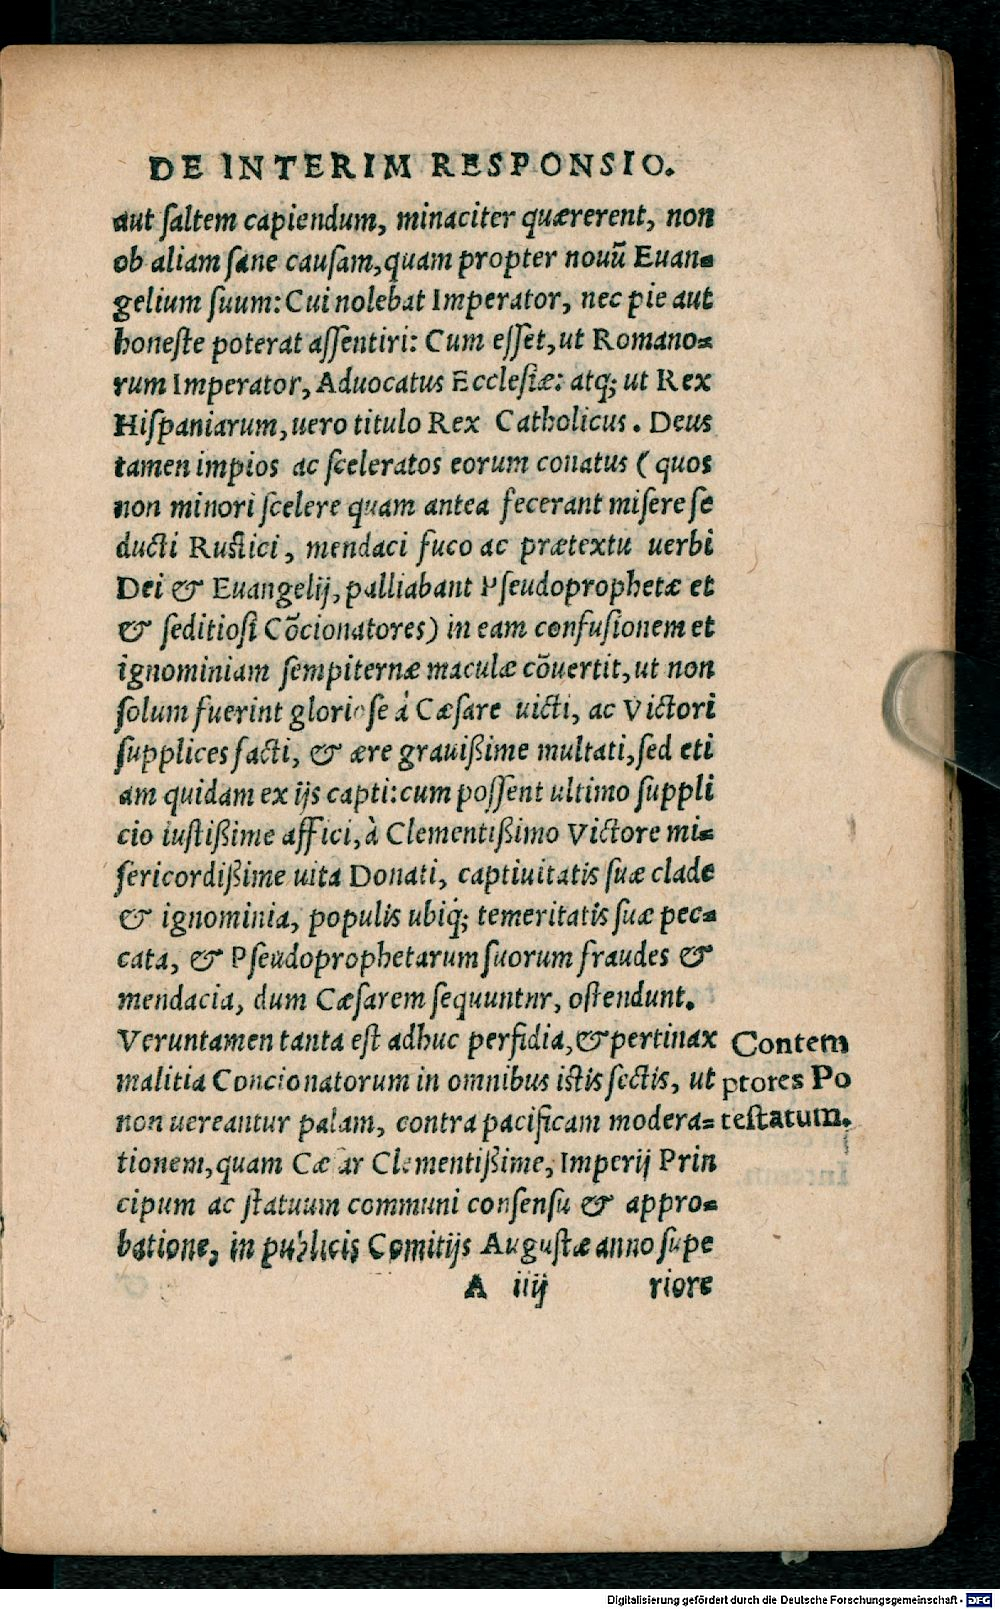 DE INTERIM RESPONSIO.
aut ſaltem capiendum, minaciter quærerent, non
ob aliam ſane cauſam, quam propter nouũ Euan-
gelium ſuum: Cui nolebat Imperator, nec pie aut
honeſte poterat aſſentiri: Cum eſſet, ut Romano-
rum Imperator, Aduocatus Eccleſiæ: atq; ut Rex
Hiſpaniarum, uero titulo Rex Catholicus. Deus
tamen impios ac ſceleratos eorum conatus (quos
non minori ſcelere quam antea fecerant miſere ſe
ducti Ruſtici, mendaci fuco ac prætextu uerbi
Dei & Euangelij, palliabant Pſeudoprophetæ et
& ſeditioſi Cõcionatores) in eam confuſionem et
ignominiam ſempiternæ maculæ cõuertit, ut non
ſolum fuerint glorioſe à Cæſare uicti, ac Victori
ſupplices facti, & ære grauißime multati, ſed eti
am quidam ex ijs capti: cum poſſent ultimo ſuppli
cio iuſtißime affici, à Clementißimo Victore mi-
ſericordißime uita Donati, captiuitatis ſuæ clade
& ignominia, populis ubiq; temeritatis ſuæ pec-
cata, & Pſeudoprophetarum ſuorum fraudes &
mendacia, dum Cæſarem ſequuntnr, oſtendunt.
Veruntamen tanta eſt adhuc perfidia, & pertinax
malitia Concionatorum in omnibus iſtis ſectis, ut
non uereantur palam, contra pacificam modera-
tionem, quam Cæſar Clementißime, Imperij Prin
cipum ac ſtatuum communi conſenſu & appro-
batione, in publicis Comitijs Auguſtæ anno ſupe
A iiij riore
Contem
ptores Po
teſtatum.
Digitalisierung gefördert durch die Deutsche Forschungsgemeinschaft - DFG